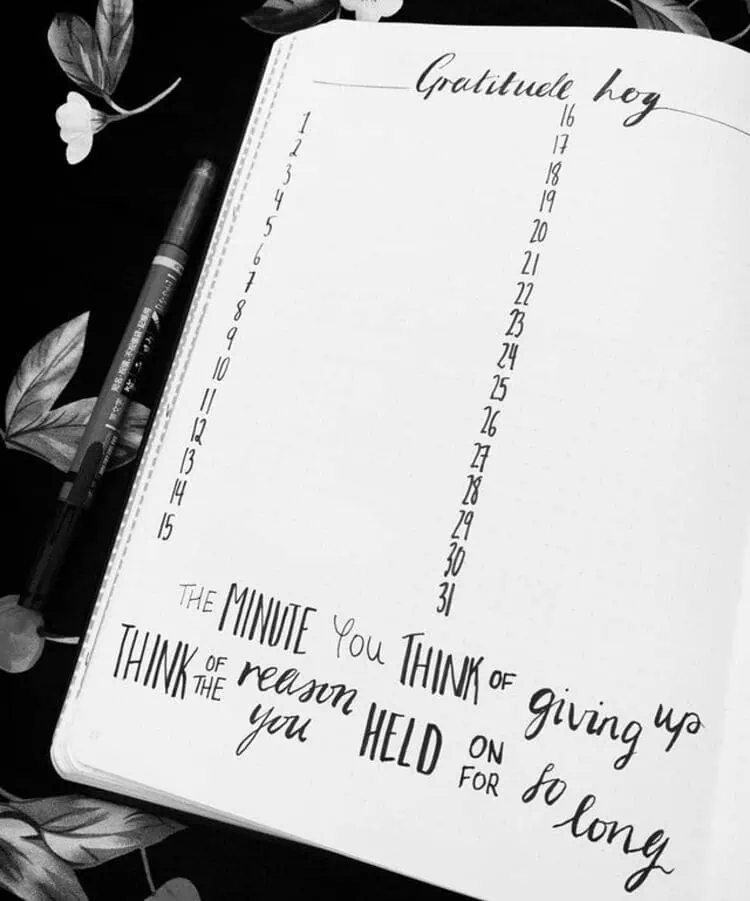 Gratitude Log
1
2
3
4
5
6
7
8
9
10
11
12
13
14
15
16
17
18
19
20
21
22
23
24
25
26
27
28
29
30
31
THE MINUTE You THINK OF giving up
THINK OF THE reason
you HELD ON FOR so long